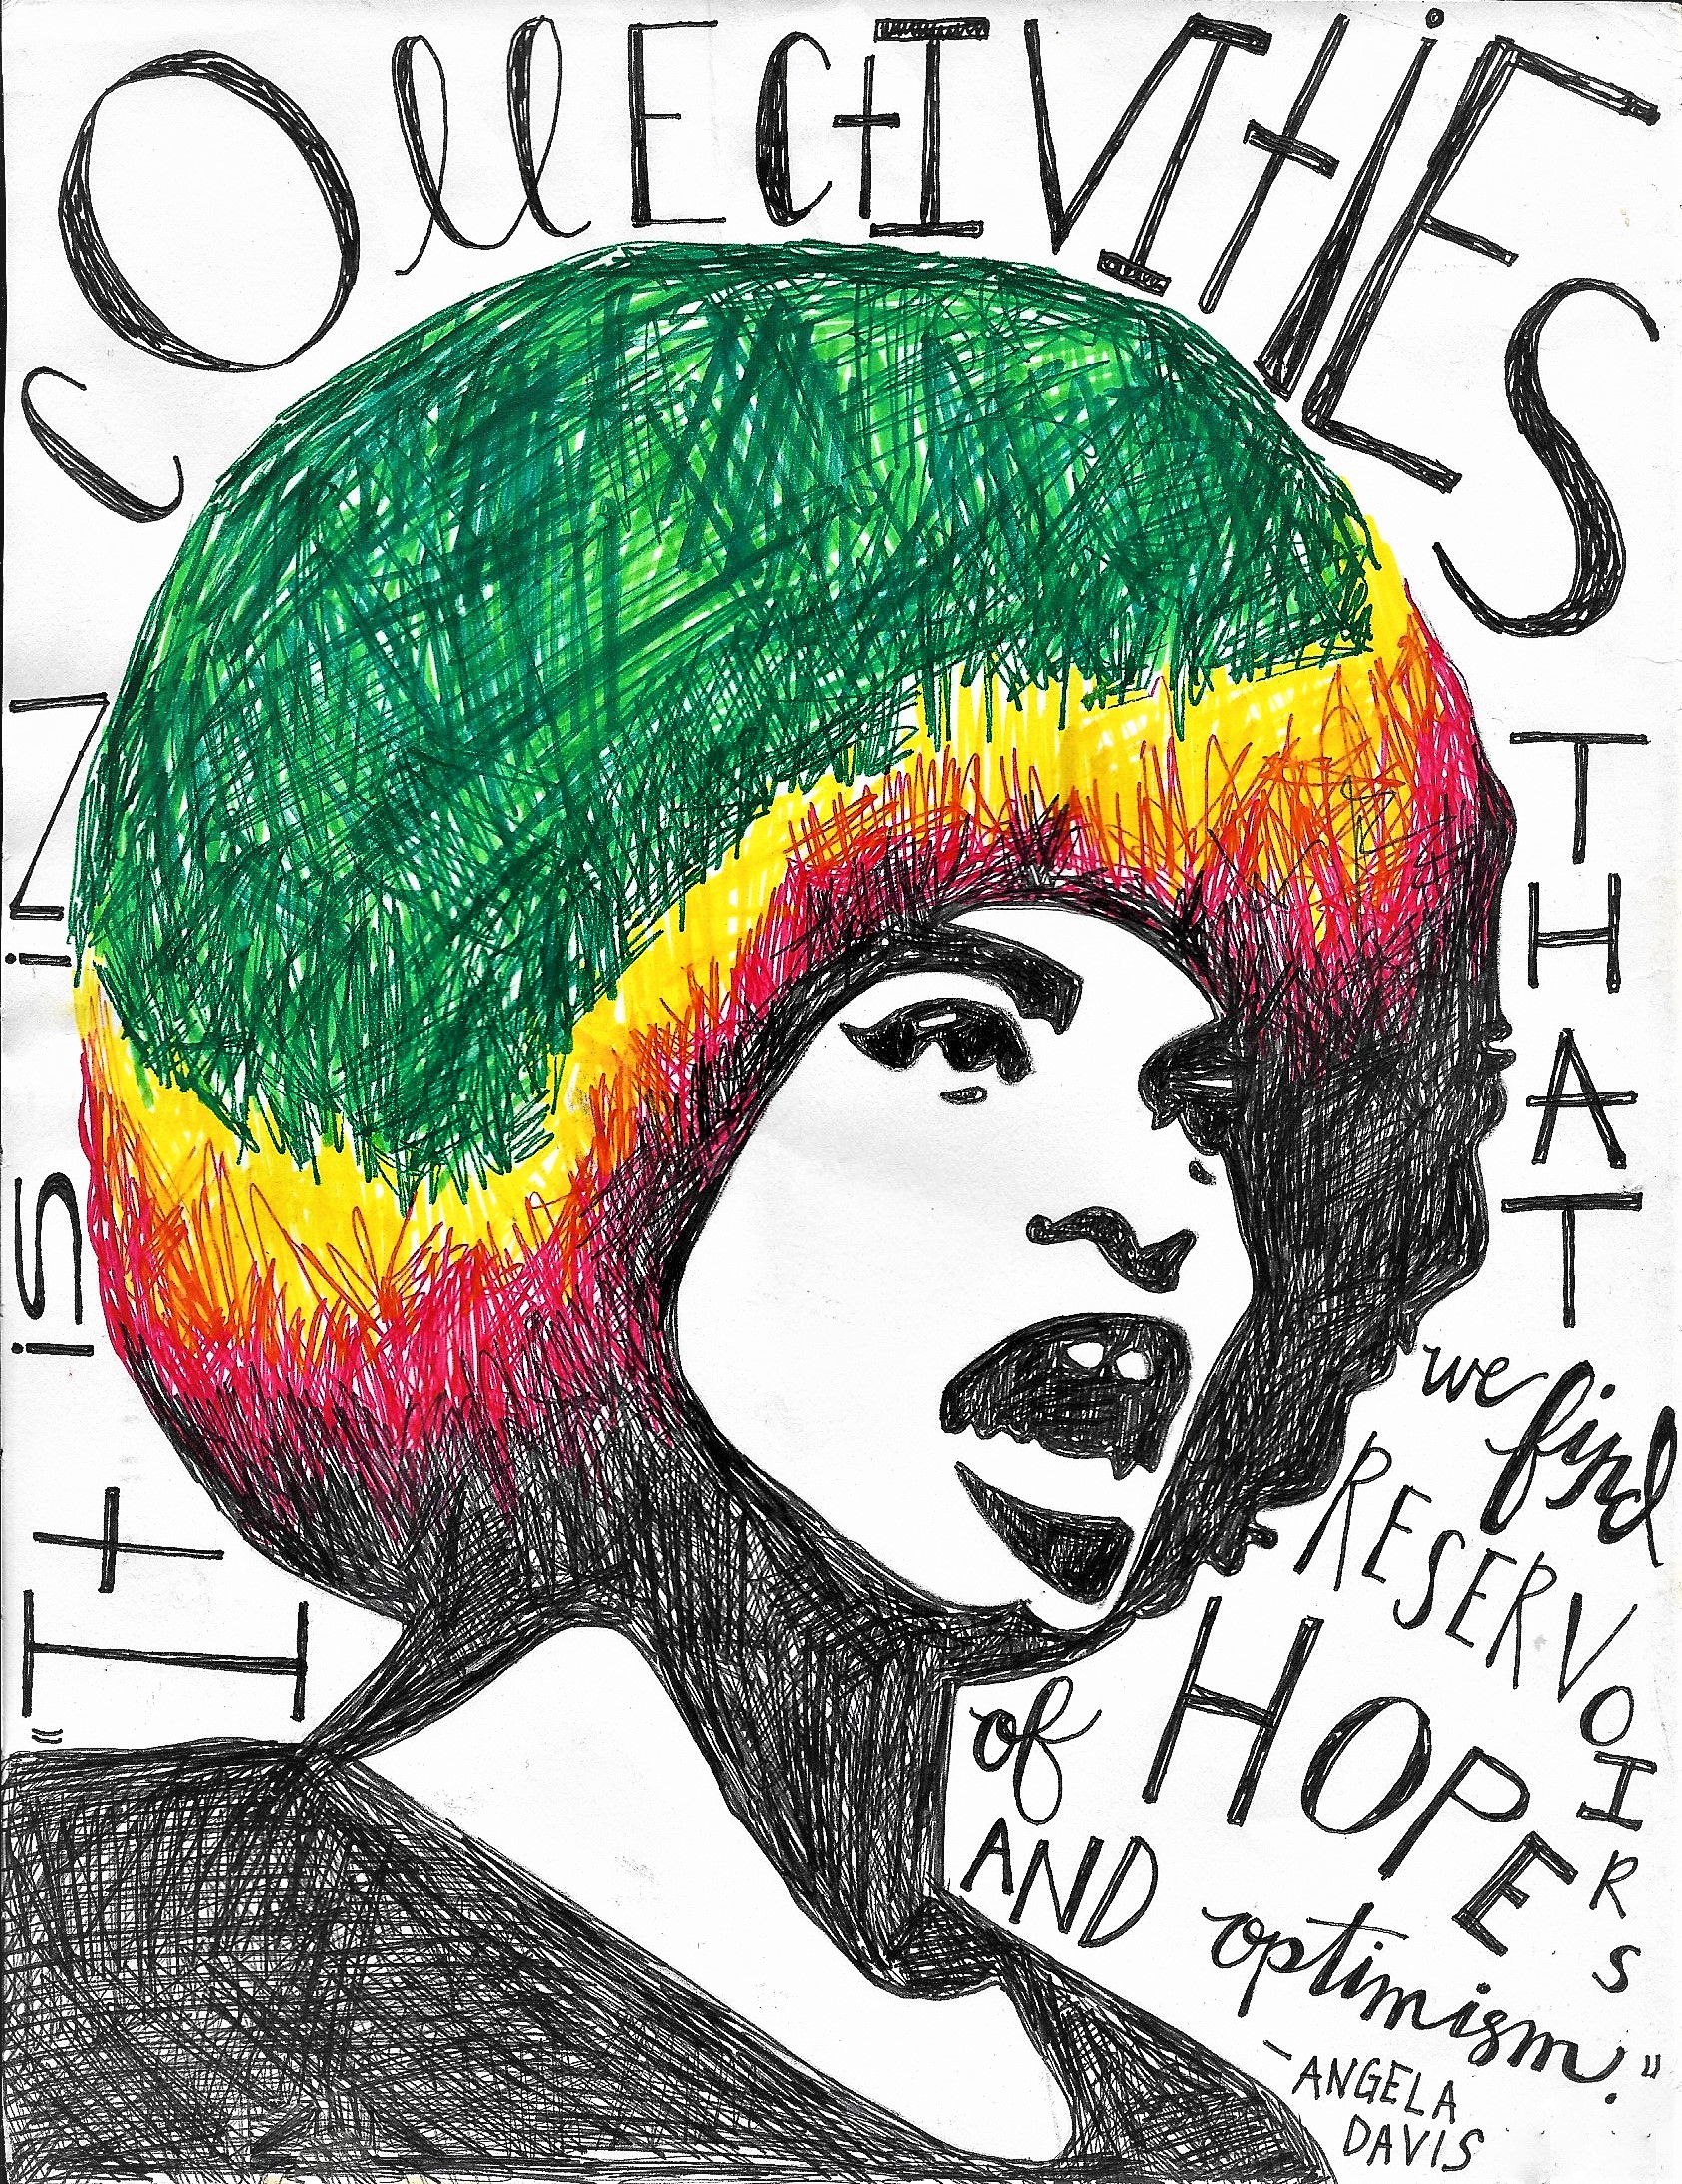 "IT iS iN
COllECtIVItiES
THAT
we find
RESERVOIRS
of HOPE
AND optimism."
-ANGELA
DAVIS